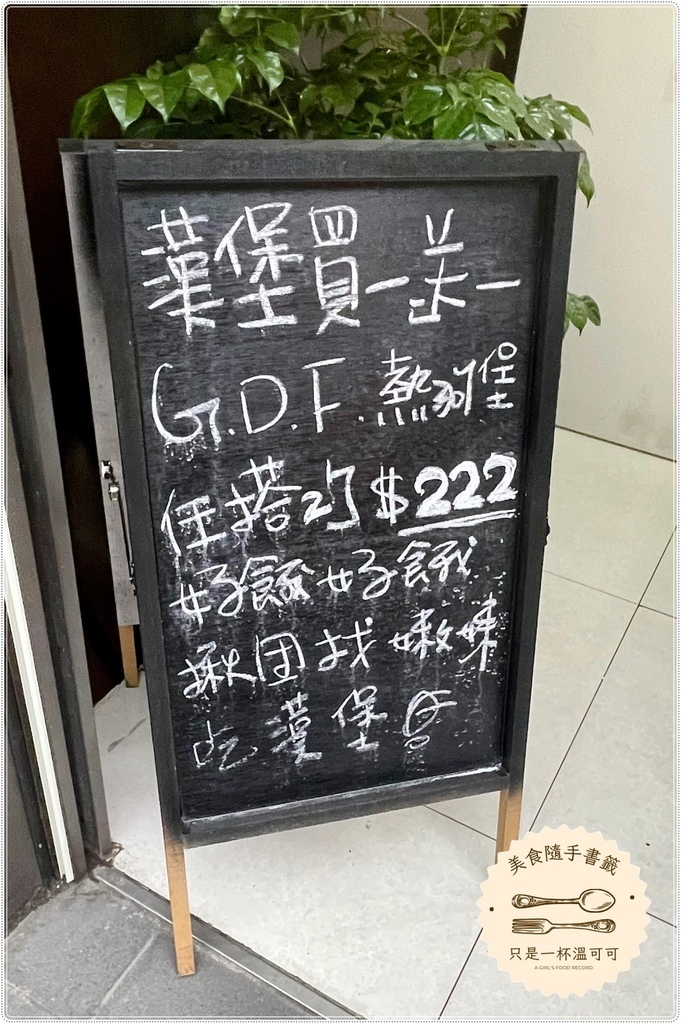 漢堡買一送一
G.D.F.熱狗堡
任搭2份 $222
好餓好餓
揪团找嫩妹
吃漢堡
美食隨手書籤
只是一杯溫可可
A GIRL'S FOOD RECORD